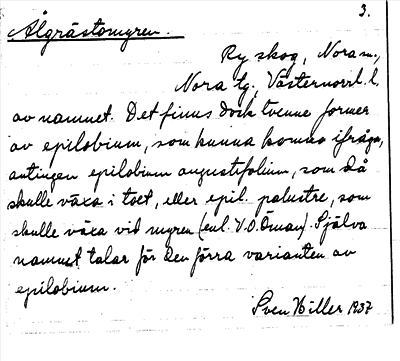 3.
Älgrästomyren.
Ry skog, Nora sn.,
Nora tg. Västernorrl. l.
av namnet. Det finns dock tvenne former
av epilobium, som kunna komma ifråga,
antingen epilobium angustifolium, som då
skulle växa i toet, eller epil. palustre, som
skulle växa vid myren (enl. V.O. Öman). Själva
namnet talar för den förra varianten av
epilobium.
Sven Hiller 1937